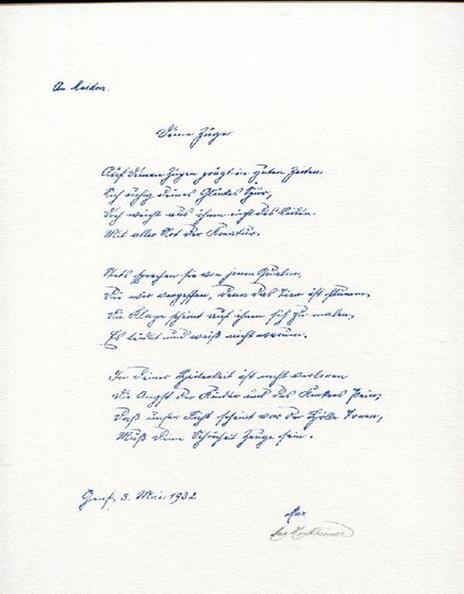 An Maidon.
Deine Züge
Auf deinen Zügen prägt in guten Zeiten
Sich ruhig deines Glückes Spur,
Doch weicht aus ihnen nicht das Leiden
Mit aller Not der Kreatur.
Stets sprechen sie von jenen Qualen,
Die wir vergessen, denn das Tier ist stumm,
Die Klage scheint auf ihnen sich zu malen,
Es leidet und weiß nicht warum.
In deiner Heiterkeit ist nicht verloren
Die Angst der Kinder und des Kerkers Pein;
Daß unser Licht scheint vor der Hölle Toren,
Muß deine Schönheit Zeuge sein.
Genf, 3. Mai 1932
Max
Max Horkheimer